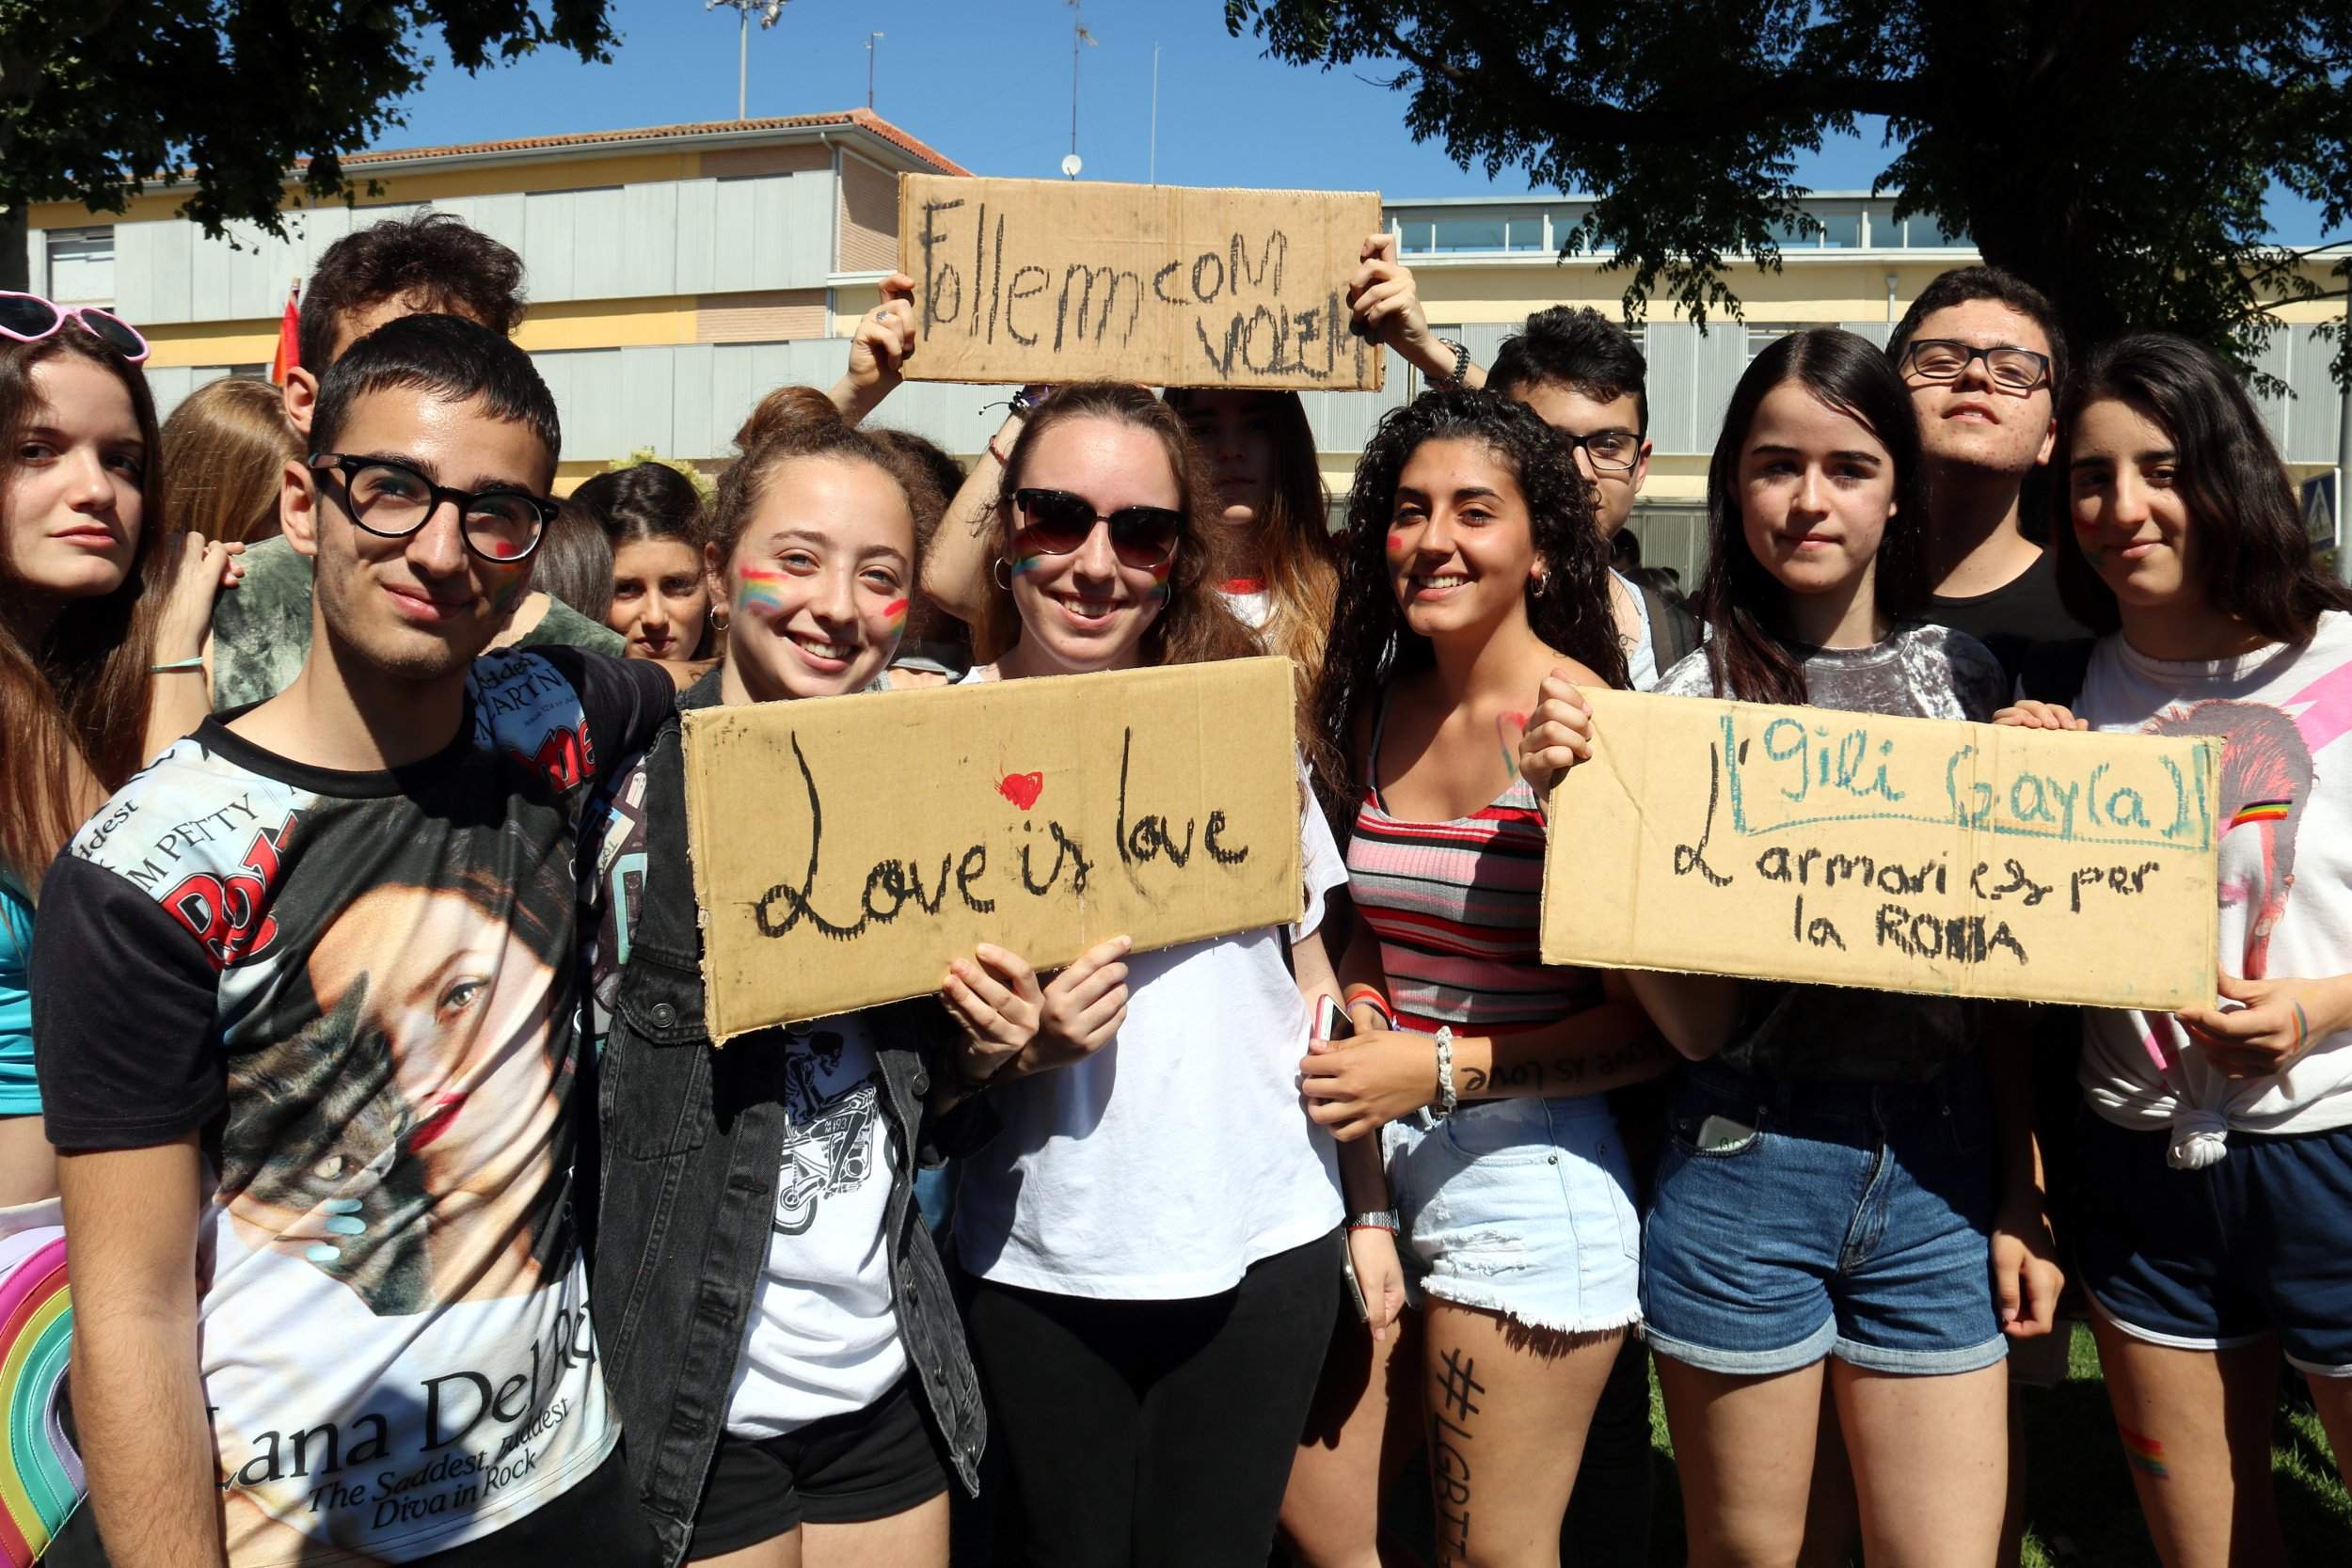 Follem com
VOLEM
Love is love
Gili Gay(a)
L'armari es per
la ROBA
Love is love
#LGBTI
ddest
M PETTY
Rol
Lana Del Re
The Saddest, Baddest
Diva in Rock
MM93